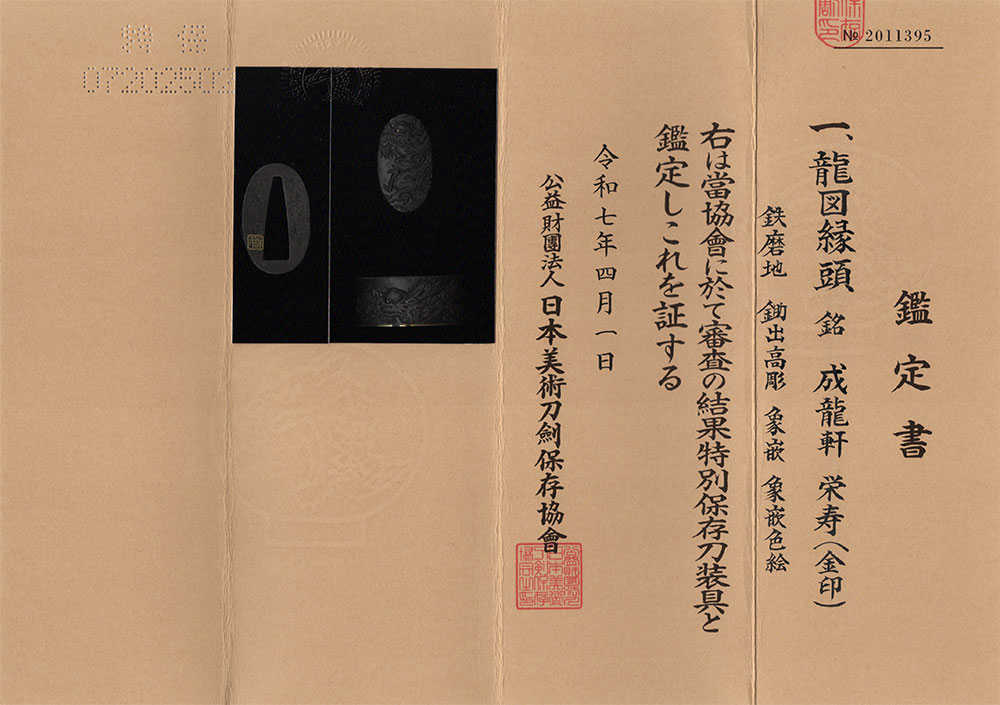 № 2011395
鑑定書
一、龍図縁頭 銘 成龍軒 栄寿(金印)
鉄磨地 鋤出高彫 象嵌 象嵌色絵
右は當協會に於て審査の結果特別保存刀装具と
鑑定しこれを証する
令和七年四月一日
公益財團法人 日本美術刀劍保存協會
特 保
07202502